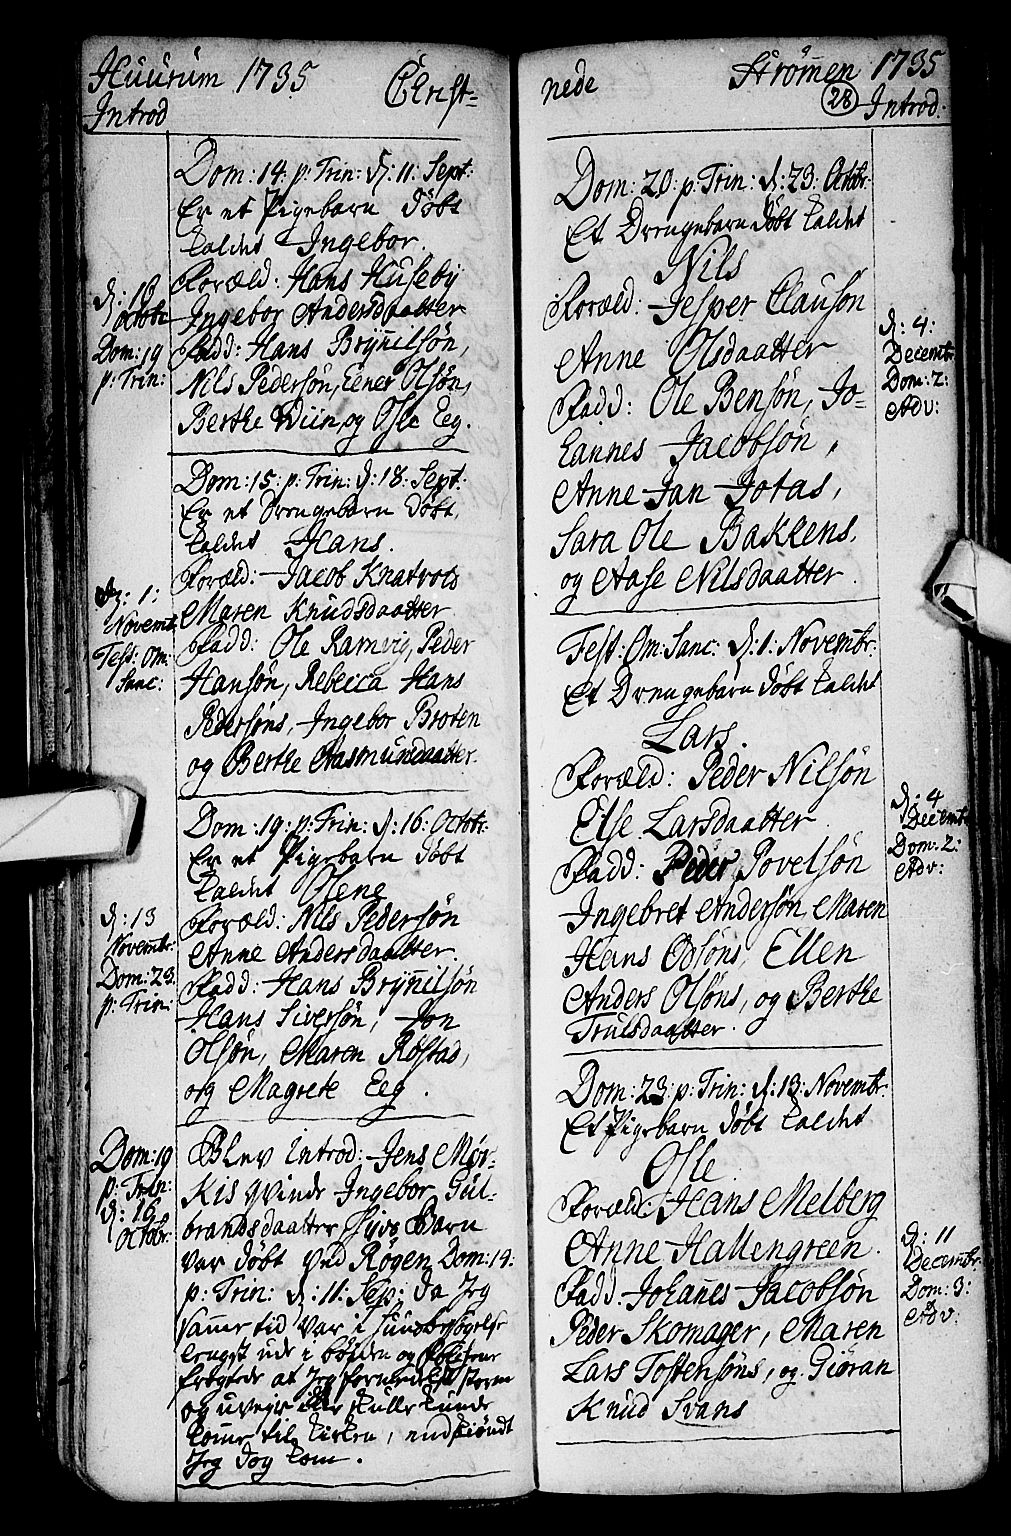 Huurum 1735
Christ=
Introd
Dom: 14. p: Trin: d: 11: Sept:
Er et Pigebarn døbt
kaldet Ingebor.
Foræld: Hans Huseby
Ingebor Andersdaatter
Fadd: Hans Brÿnnilsøn,
Nils Pedersøn, Eener Olsøn,
Berthe Wiin, og Osle Eeg.
d: 16
Octobr
Dom: 19
p: Trin:
Dom: 15: p: Trin: d: 18: Sept:
Er et Drengebarn døbt,
kaldet Hans.
Foræld: Jacob Knatvold
Maren Knudsdaatter
Fadd: Ole Ramvig, Peder
Hansøn, Rebecca Hans
Pedersøns, Ingebor Broten
og Berthe Rasmunsdaatter.
d: 1:
Novembr
Fest: Om:
Sanc:
Dom: 19: p: Trin: d: 16: Octobr:
Er et Pigebarn døbt
kaldet Olene
Foræld: Nils Pedersøn
Anne Andersdaatter.
Fadd: Hans Brÿnnilsøn
Hans Siversøn, Jon
Olsøn, Maren Røstad,
og Magrete Eeg.
d: 13
Novembr:
Dom: 23.
p: Trin:
Blev introd: Jens Mør-
kis qvinde Ingebor Gul-
brandsdaatter hvis Barn
var døbt ved Røgen Dom: 14:
p: Trin: d: 11: Sep: da Jeg
samme tid var i huusbesøgelse
lengst ude i bøjden og
frøgtede at Jeg formedelst storm
og uvejr ikke skulle kunde
komme til kirken, endskiøndt
Jeg dog kom.
Dom: 19
p: Trin:
d: 16
Octobr:
nede
Strømmen 1735
28
Introd:
Dom: 20: p: Trin: d: 23: Octobr:
Et Drengebarn døbt kaldet
Nils
Foræld: Jesper Clauson
Anne Olsdaatter
Fadd: Ole Bensøn, Jo-
hannes Jacobsøn,
Anne Jan Jotas,
Sara Ole Bakkens,
og Aase Nilsdaatter.
d: 4:
Decembr
Dom: 2:
Adv:
Fest: Om: Sanc: d: 1: Novembr:
Et Drengebarn døbt kaldet
Lars.
Foræld: Peder Nilsøn
Else Larsdaatter
Fadd: Peder Povelsøn
Ingebret Andersøn, Maren
Hans Odsøns, Ellen
Anders Olsøns, og Berthe
Trulsdaatter.
d: 4
Decembr
Dom: 2:
Adv:
Dom: 23: p: Trin: d: 13: Novembr.
Et Pigebarn døbt kaldet
Osle
Foræld: Hans Melberg
Anne Hallengreen.
Fadd: Johannes Jacobsøn
Peder Skomager, Maren
Lars Tostensøns, og Giøran
Knud Svans
d: 11
Decembr:
Dom: 3:
Adv: